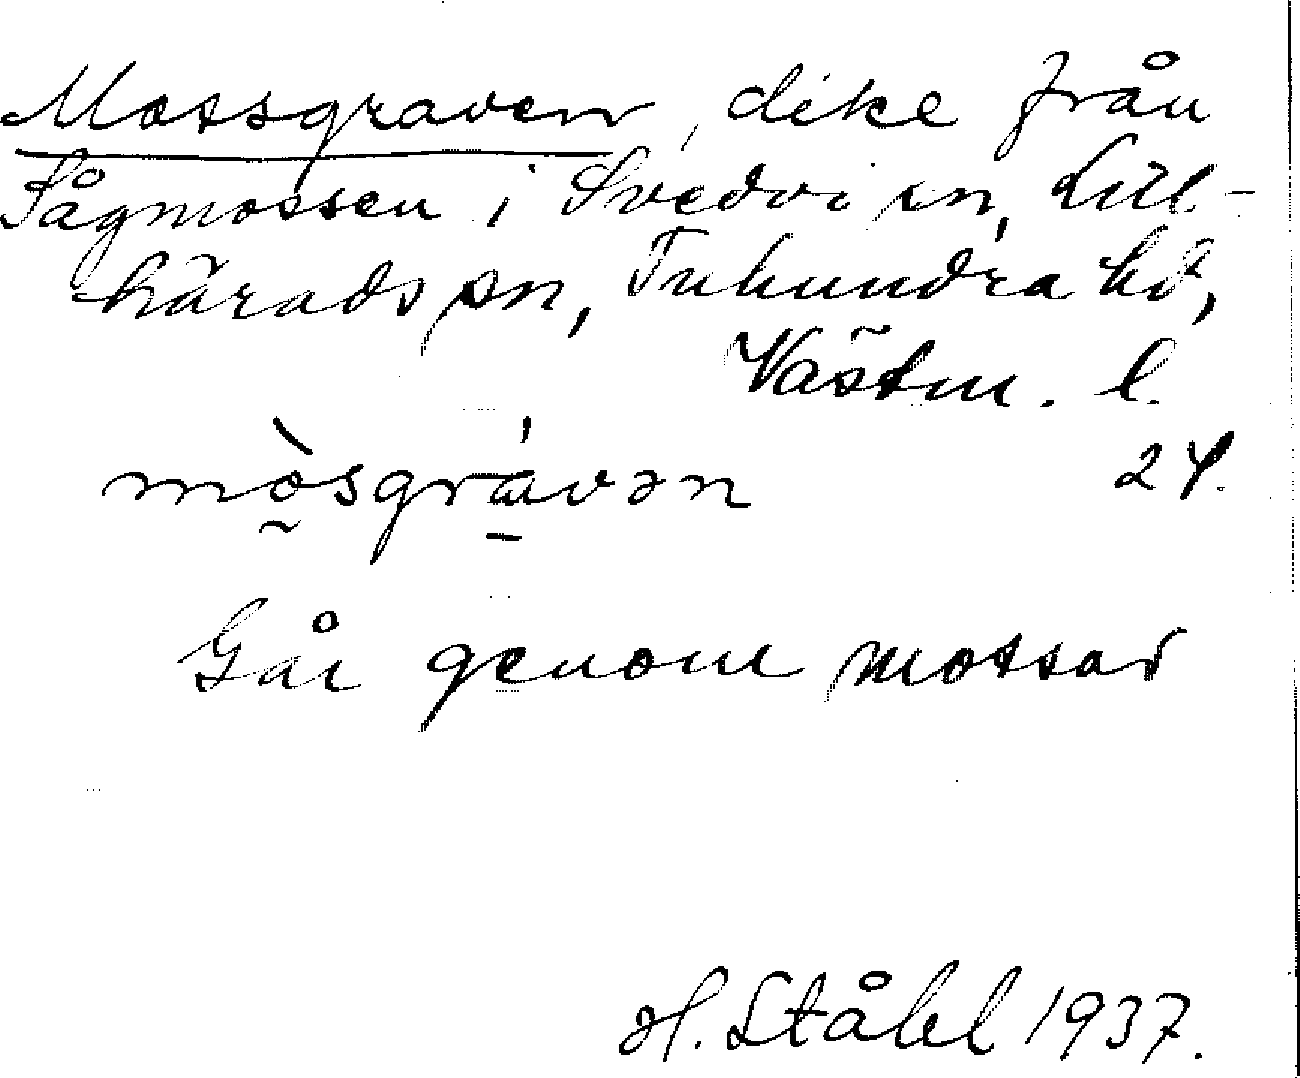 Mossgraven, dike från
Sågmossen i Svedvi sn, Lill-
härads sn, Tuhundra hd,
Västm. l.
mòsgrávən 24.
Går genom mossar
H. Ståhl 1937.